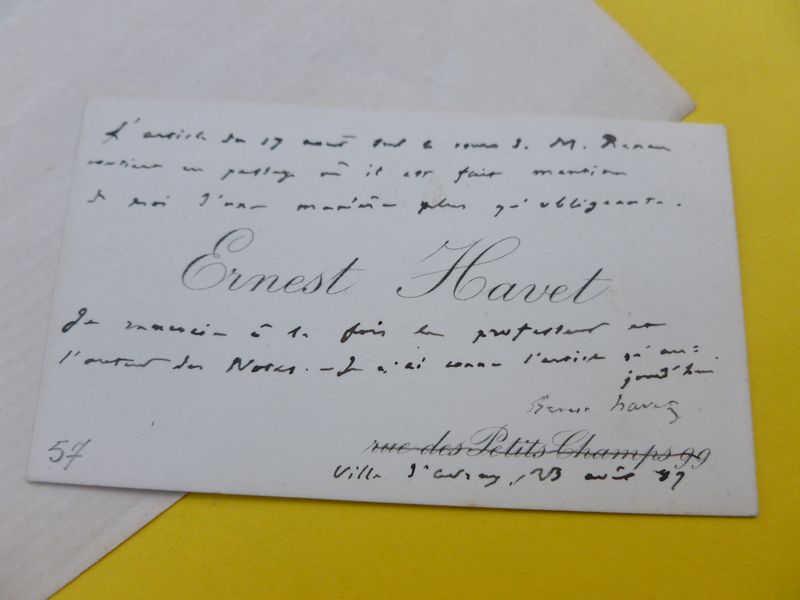 L'article du 17 août sur le cours de M. Renan
contient un passage où il est fait mention
de moi d'une manière plus qu'obligeante.
Ernest Havet
Je remercie à la fois le professeur et
l'auteur des Notes. - Je n'ai connu l'article qu'au=
jourd'hui.
Ernest Havet
rue des Petits Champs 99
Ville d'Avray, 23 août 87
57